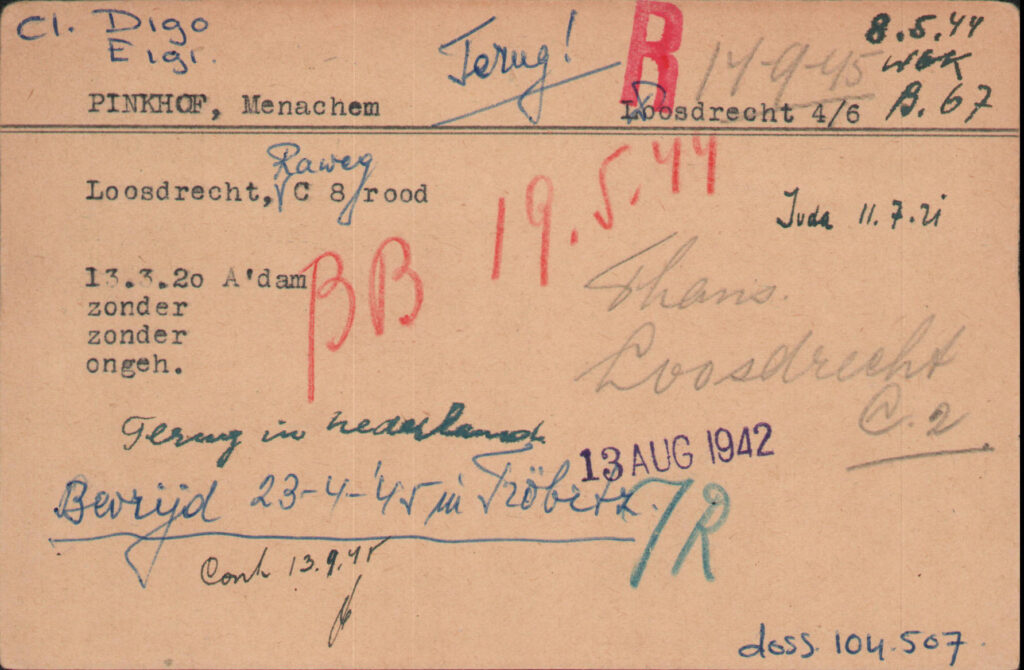 Cl. Digo
Eigr.
Terug!
R
14-9-45
8.5.44
WBK
B. 67
PINKHOF, Menachem
Loosdrecht 4/6
Raweg
Loosdrecht, C 8 rood
19.5.44
Juda 11.7.21
13.3.20 A'dam
zonder
zonder
ongeh.
BB
Thans
Loosdrecht
C. 2
Terug in nederland.
13 AUG 1942
Bevrijd 23-4-'45 in Tröbitz.
TR
Cont 13.9.45
doss. 104.507